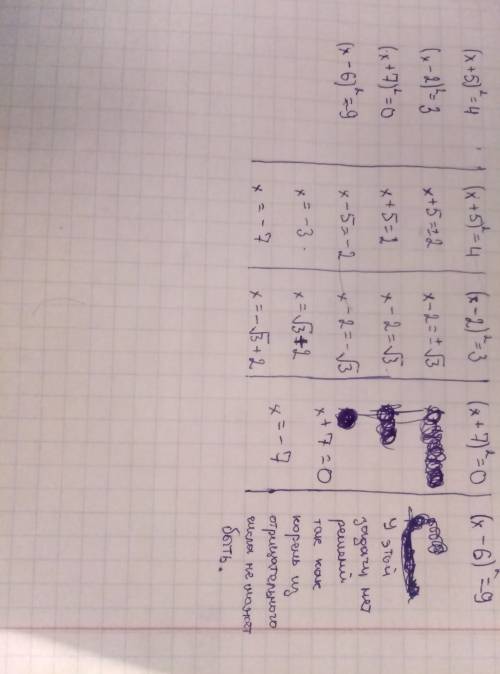 (x+5)²=4
(x-2)²=3
(x+7)²=0
(x-6)²=-9
(x+5)²=4
x+5=±2
x+5=2
x-5=-2
x=-3.
x=-7
(x-2)²=3
x-2=±√3
x-2=√3.
x-2=-√3
x=√3+2
x=-√3+2
(x+7)²=0
x+7=0
x=-7
(x-6)²=-9
У этой
задачи нет
решений
так как
корень из
отрицательного
числа не может
быть.